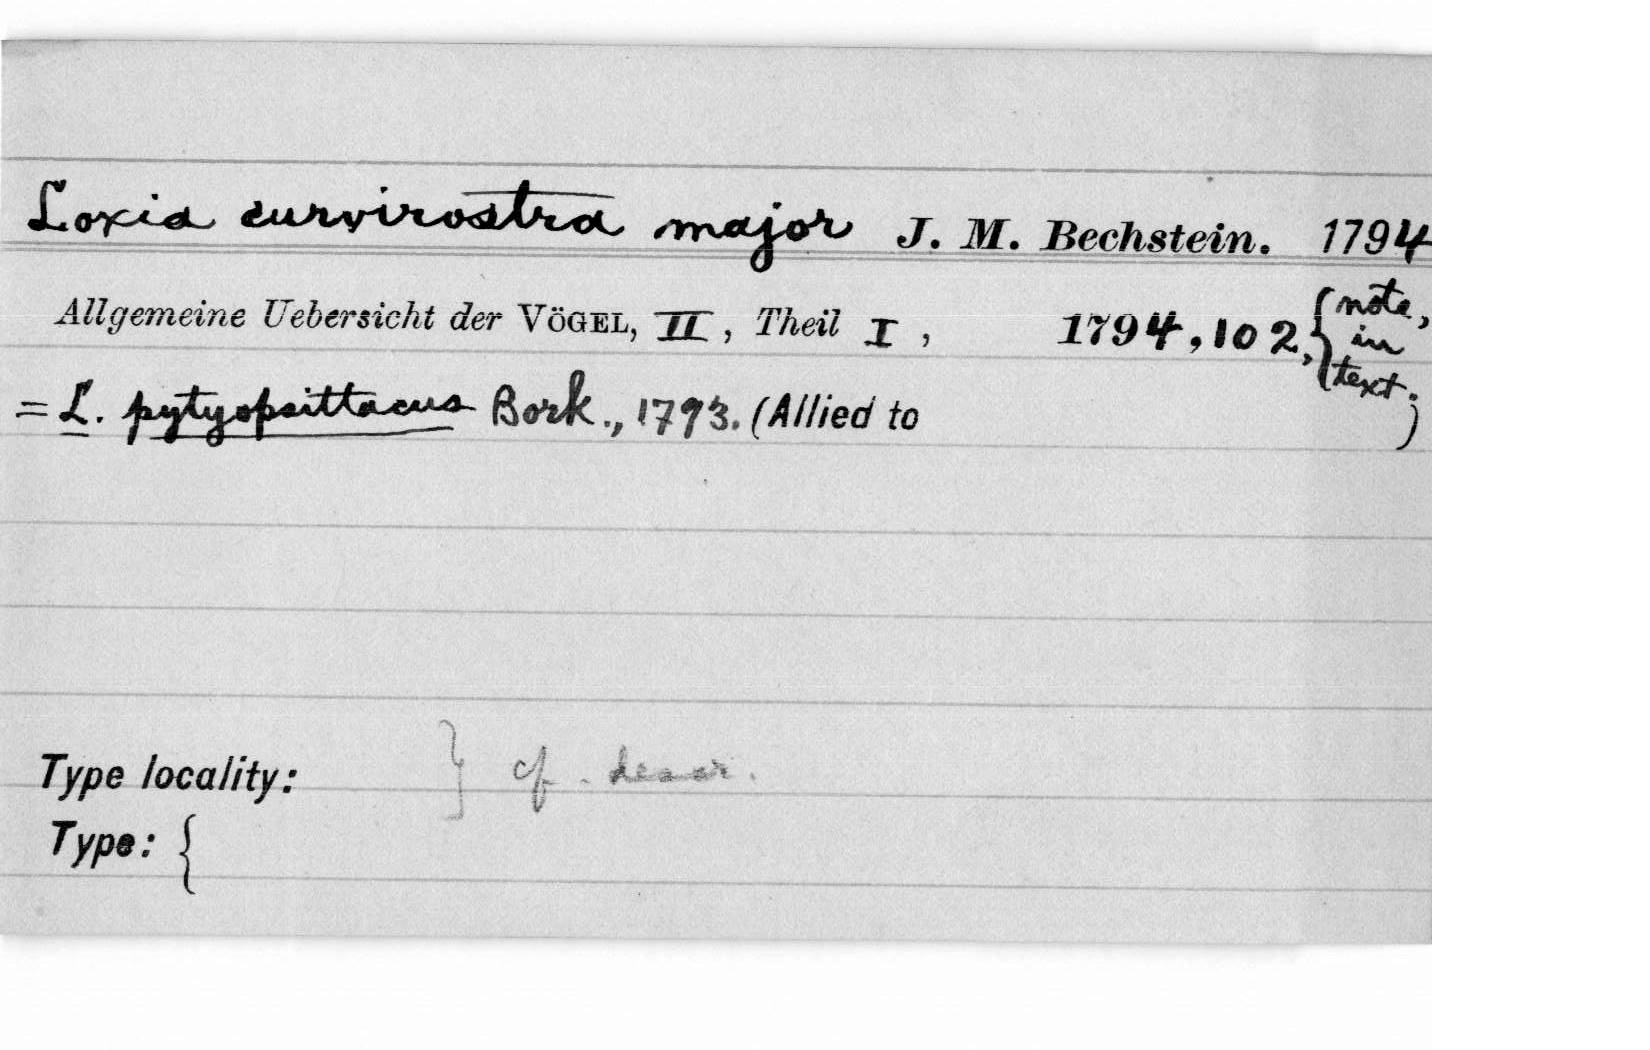 Loxia curvirostra major J. M. Bechstein. 1794
Allgemeine Uebersicht der VÖGEL, II, Theil I, 1794, 102, { note, in text.
= L. pytyopsittacus Bork., 1793. (Allied to )
Type locality: } cf. descr.
Type: {